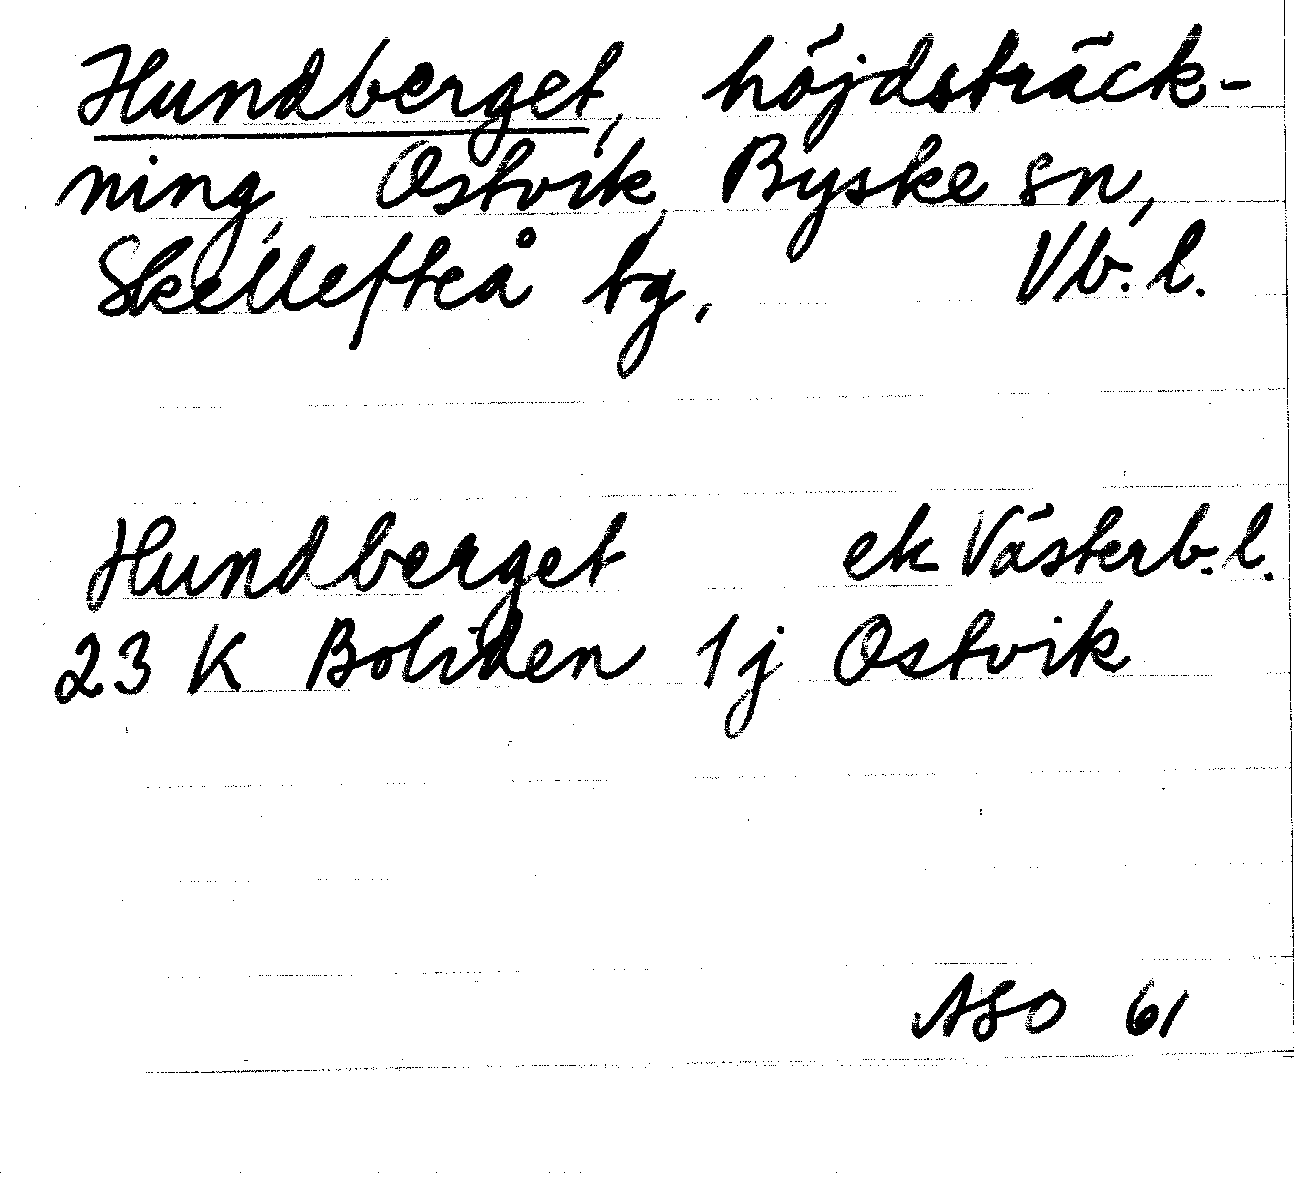 Hundberget, höjdsträck-
ning, Ostvik, Byske sn,
Skellefteå tg, Vb. l.
Hundberget ek Västerb. l.
23 K Boliden 1j Ostvik
ASO 61